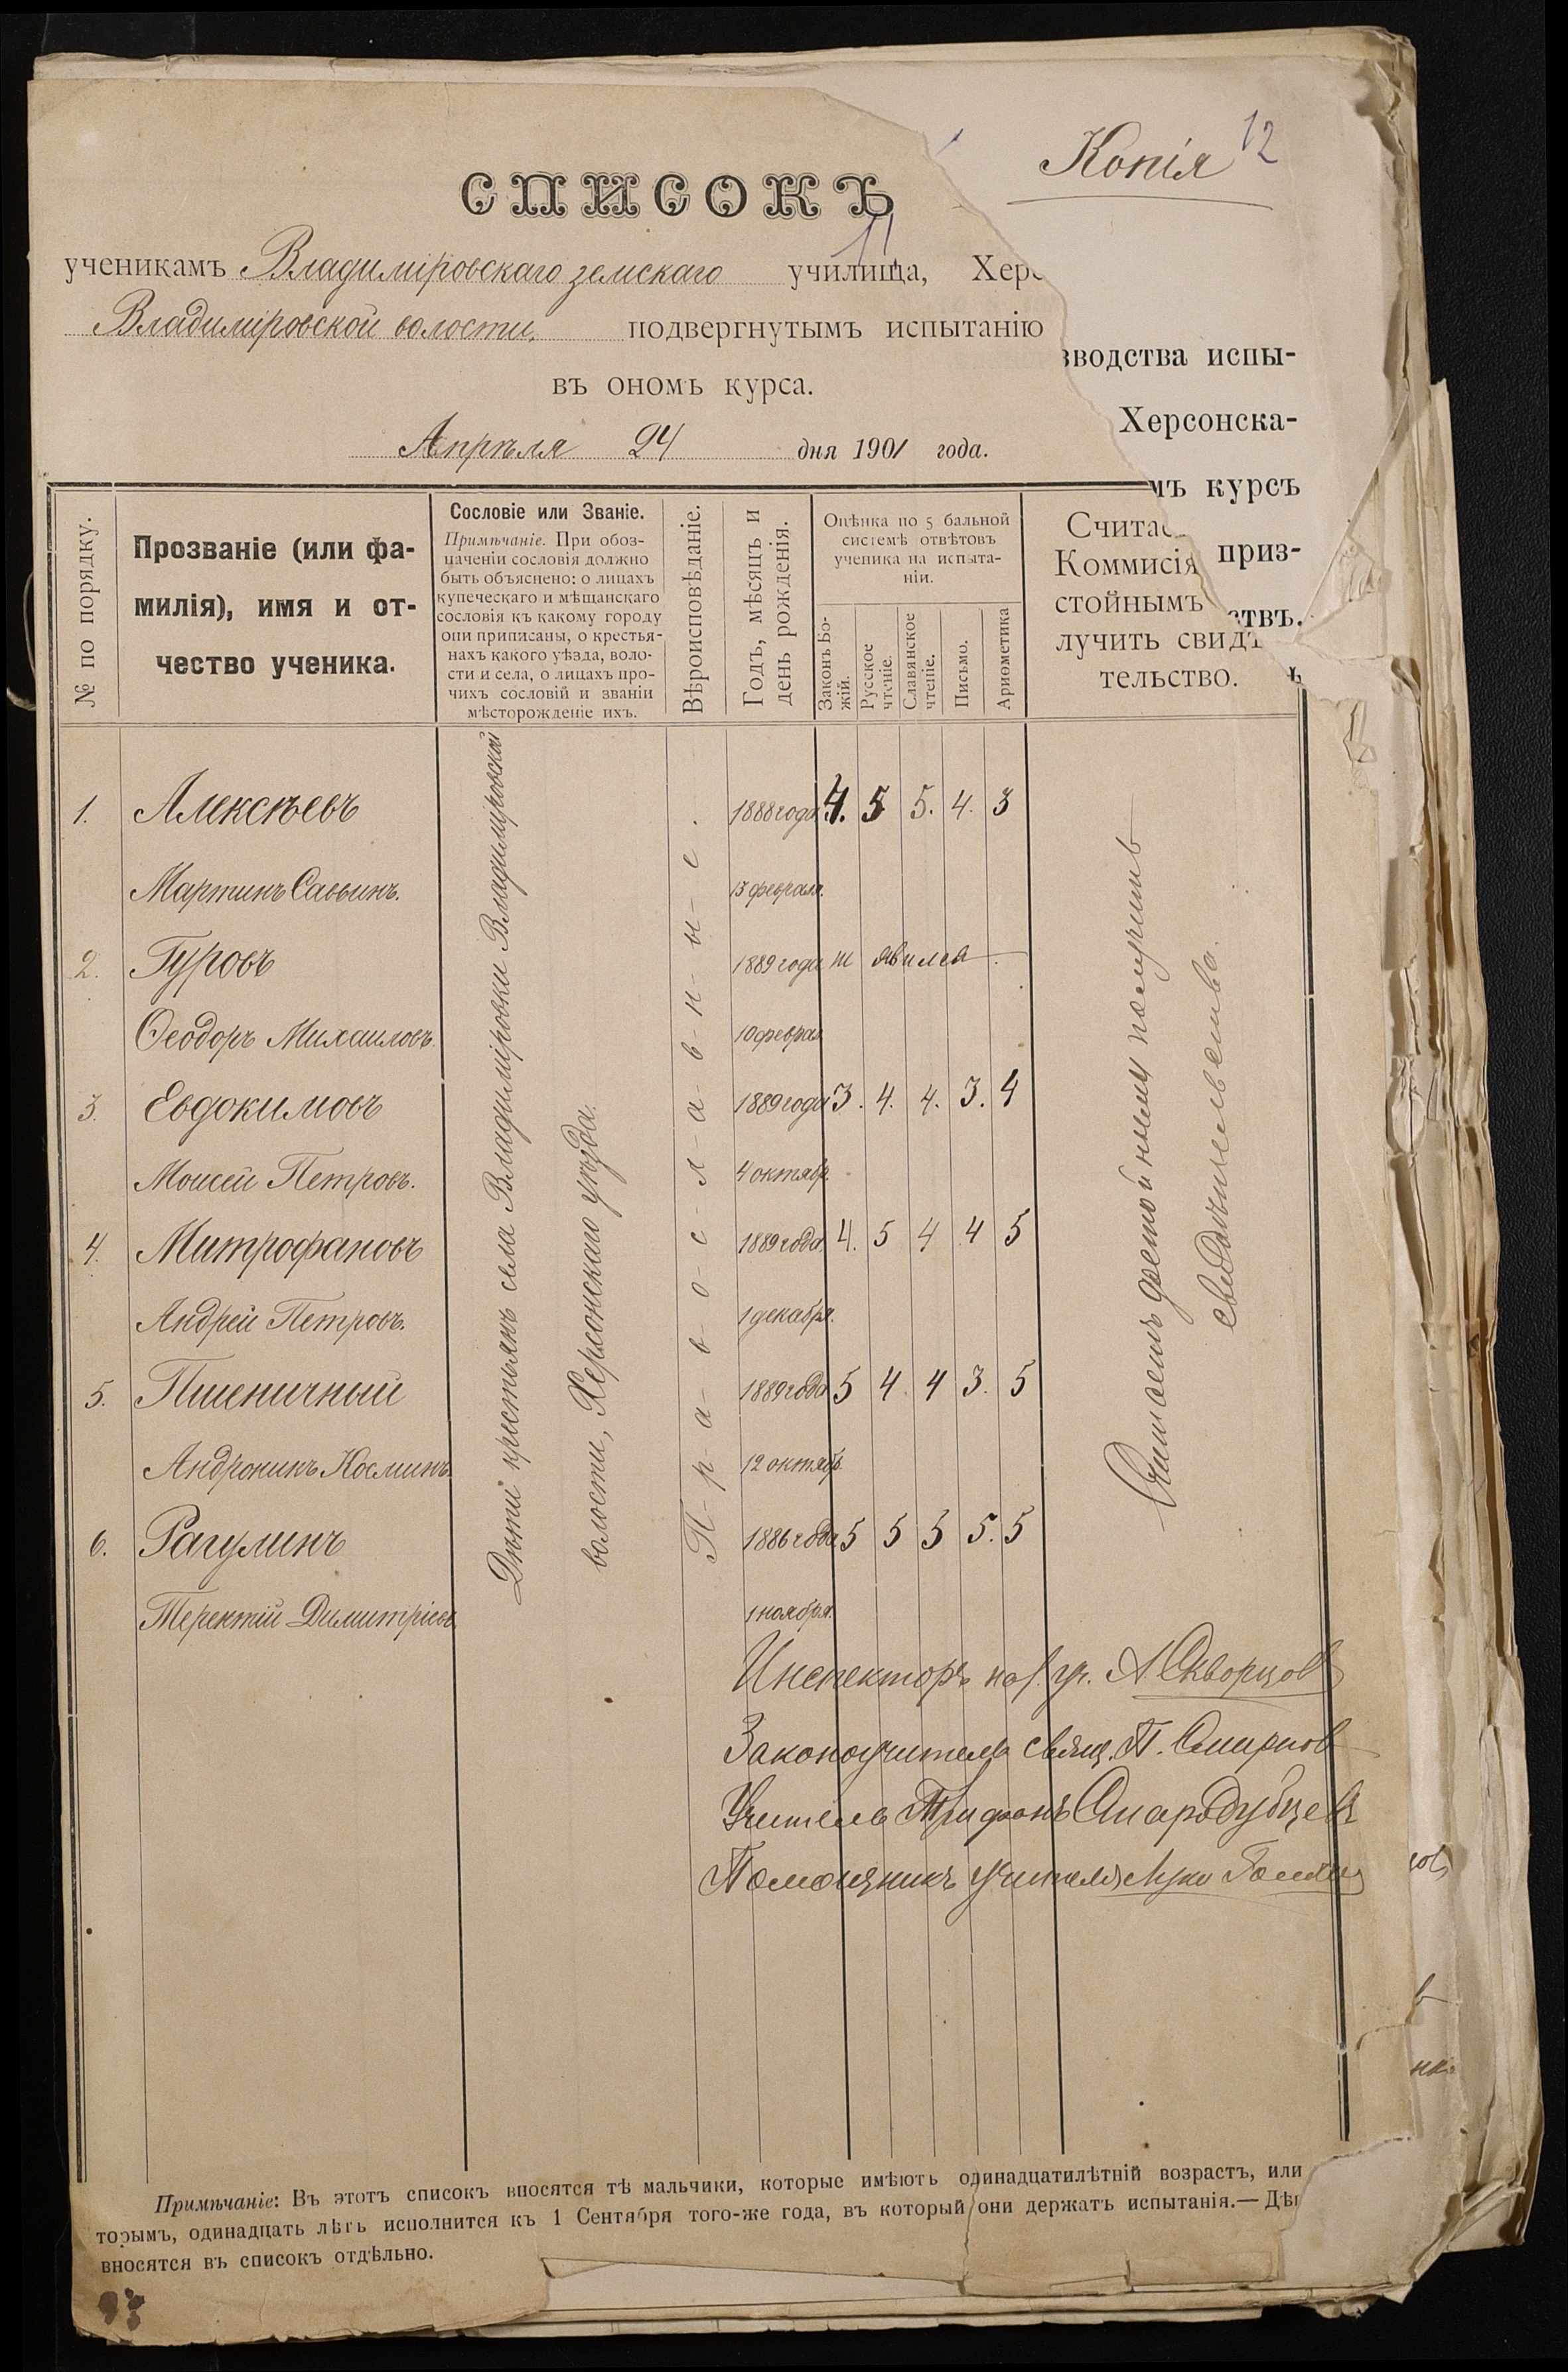 Копія 12
СПИСОКЪ
11
ученикамъ Владиміровскаго земскаго училища, Херс
Владиміровской волости, подвергнутымъ испытанію
въ ономъ курса.
Апрѣля 24 дня 1901 года.
зводства испы-
Херсонска-
мъ курсъ
приз-
ствъ.
№ по порядку.
Прозваніе (или фа-
милія), имя и от-
чество ученика.
Сословіе или Званіе.
Примѣчаніе. При обоз-
наченіи сословія должно
быть объяснено: о лицахъ
купеческаго и мѣщанскаго
сословія къ какому городу
они приписаны, о крестья-
нахъ какого уѣзда, воло-
сти и села, о лицахъ про-
чихъ сословій и званіи
мѣсторожденіе ихъ.
Вѣроисповѣданіе.
Годъ, мѣсяцъ и
день рожденія.
Оцѣнка по 5 бальной
системѣ отвѣтовъ
ученика на испыта-
ніи.
Законъ Бо-
жій.
Русское
чтеніе.
Славянское
чтеніе.
Письмо.
Ариѳметика
Считае
Коммисія
стойнымъ
лучить свидѣ
тельство.
1. Алексѣевъ 1888 года 4. 5 5. 4. 3
Мартинъ Саввинъ. 13 февраля.
2. Гуровъ 1889 года не явился
Ѳеодоръ Михаиловъ. 10 феврал
3. Евдокимовъ 1889 года 3. 4. 4. 3. 4
Моисей Петровъ. 4 октябр.
4. Митрофановъ 1889 года 4. 5 4 4 5
Андрей Петровъ. 1 декабря.
5. Пшеничный 1889 года 5 4. 4 3. 5
Андроникъ Косминъ. 12 октябр.
6. Рагулинъ 1886 года 5 5 5 5. 5
Терентій Димитріевъ 1 ноября.
Дѣти крестьянъ села Владиміровки Владиміровской
волости, Херсонскаго уѣзда.
П-р-а-в-о-с-л-а-в-н-ы-е.
Считаемъ достойными получить
свидѣтельство.
Инспекторъ нар. уч. А. Скворцовъ
Законоучитель свящ. П. Смирнов
Учитель Трифонъ Стародубцевъ
Помощникъ учителя
Примѣчаніе: Въ этотъ списокъ вносятся тѣ мальчики, которые имѣютъ одинадцатилѣтній возрастъ, или
торымъ, одинадцать лѣтъ исполнится къ 1 Сентября того-же года, въ который они держатъ испытанія.— Дѣв
вносятся въ списокъ отдѣльно.